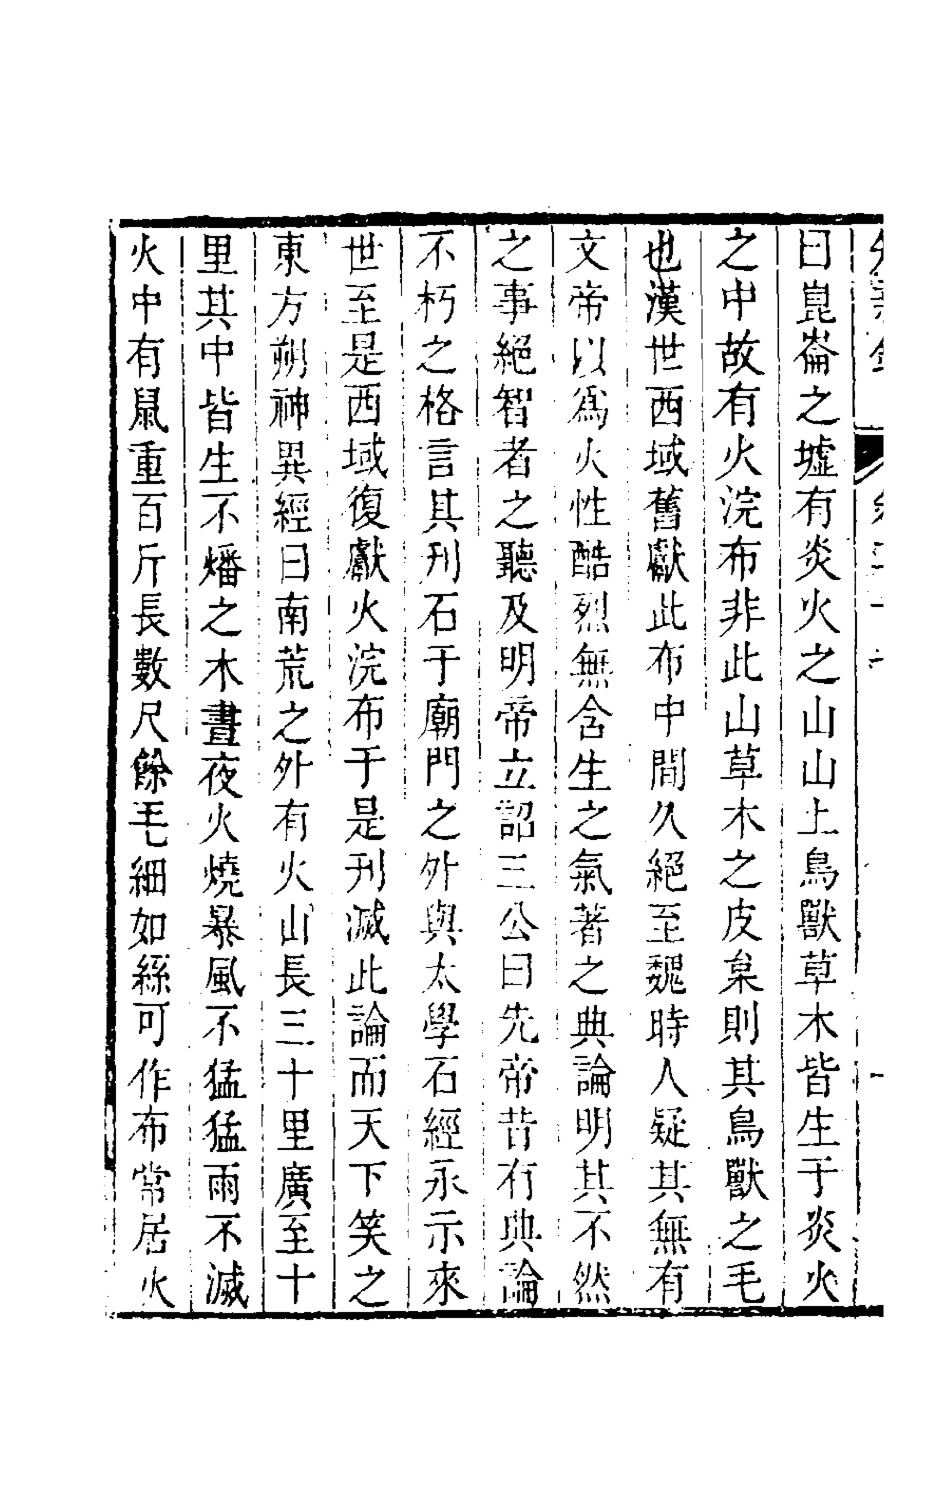 曰崑崙之墟有炎火之山山上鳥獸草木皆生于炎火
之中故有火浣布非此山草木之皮枲則其鳥獸之毛
也漢世西域舊獻此布中間久絕至魏時人疑其無有
文帝以爲火性酷烈無含生之氣著之典論明其不然
之事絕智者之聽及明帝立詔三公曰先帝昔有典論
不朽之格言其刋石于廟門之外與太學石經永示來
世至是西域復獻火浣布于是刋滅此論而天下笑之
東方朔神異經曰南荒之外有火山長三十里廣至十
里其中皆生不燔之木晝夜火燒暴風不猛猛雨不滅
火中有鼠重百斤長數尺餘毛細如絲可作布常居火